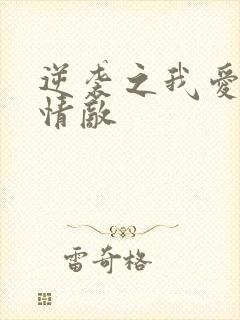 逆袭之我爱
情敵
雷奇格